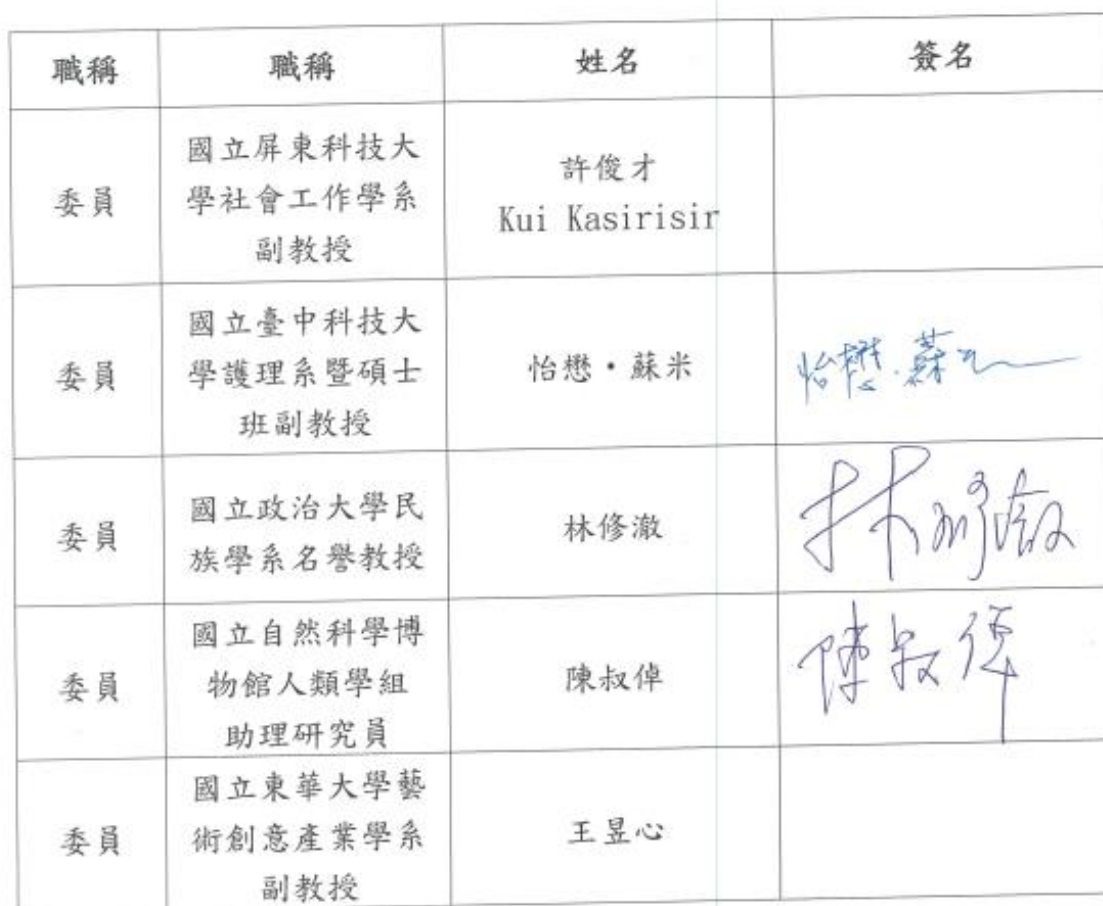 職稱 職稱 姓名 簽名
委員
國立屏東科技大
學社會工作學系
副教授
許俊才
Kui Kasirisir
委員
國立臺中科技大
學護理系暨碩士
班副教授
怡懋・蘇米
怡懋・蘇米
委員
國立政治大學民
族學系名譽教授
林修澈
林修澈
委員
國立自然科學博
物館人類學組
助理研究員
陳叔倬
陳叔倬
委員
國立東華大學藝
術創意產業學系
副教授
王昱心